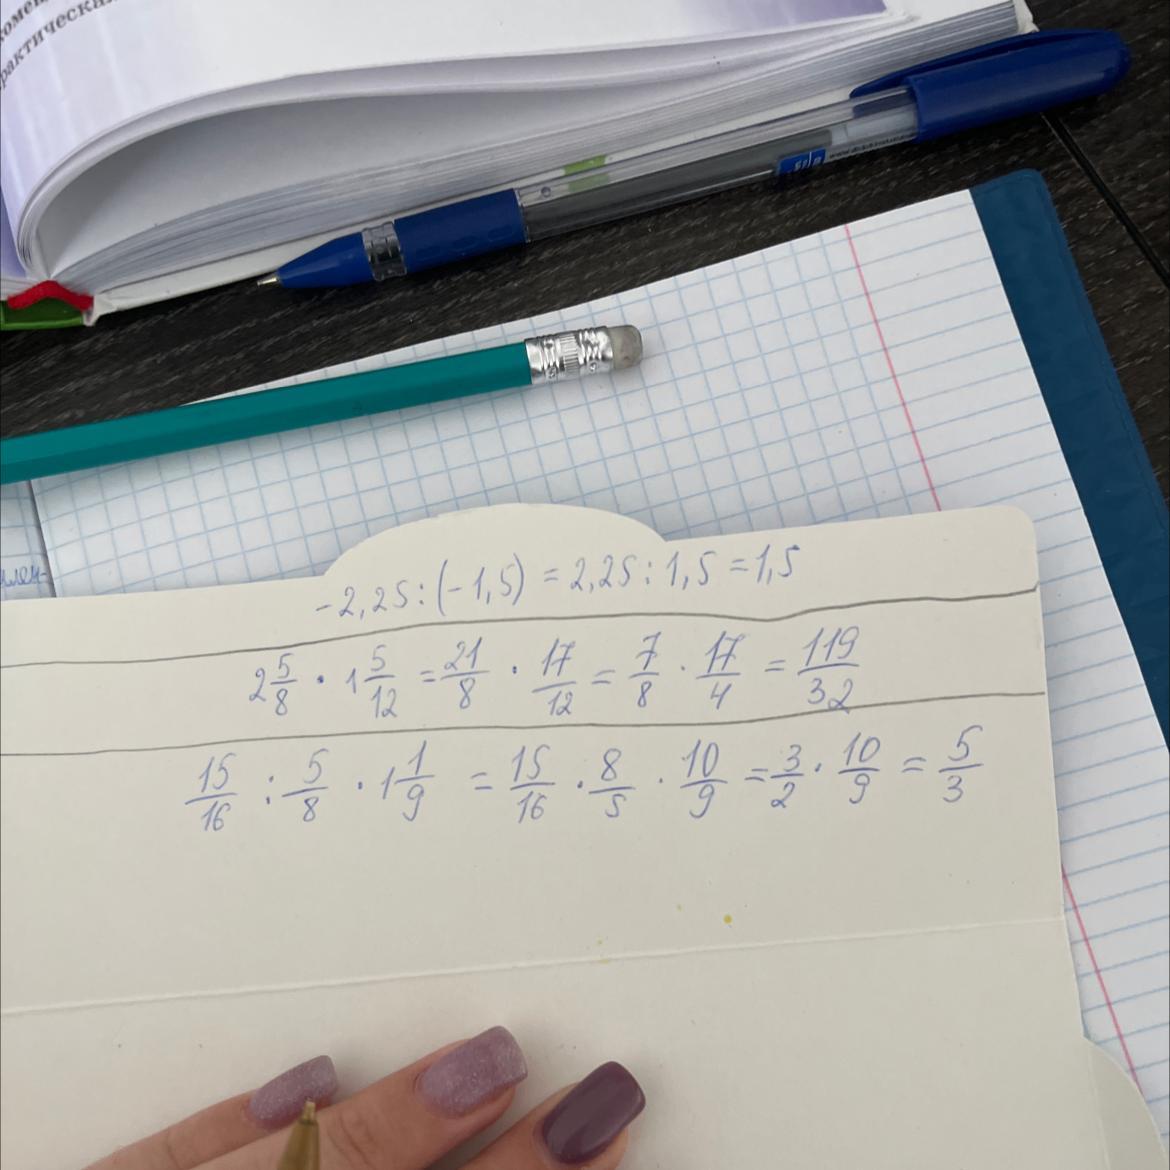 рактически
-2,25:(-1,5) = 2,25:1,5 = 1,5
2 5/8 · 1 5/12 = 21/8 · 17/12 = 7/8 · 17/4 = 119/32
15/16 : 5/8 · 1 1/9 = 15/16 · 8/5 · 10/9 = 3/2 · 10/9 = 5/3